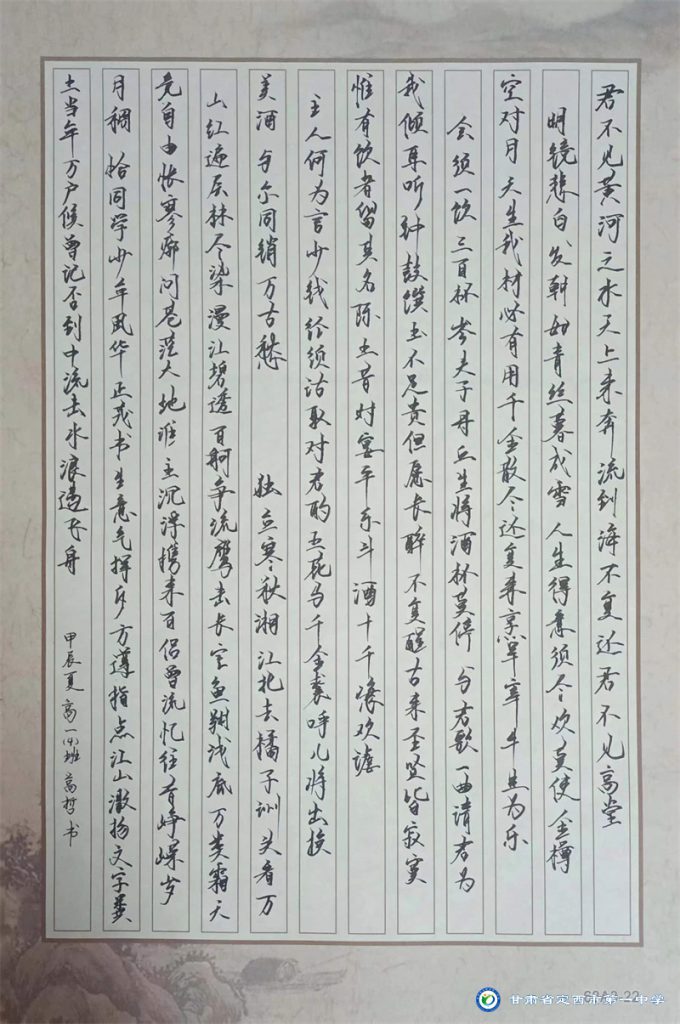 君不见黄河之水天上来奔流到海不复还君不见高堂
明镜悲白发朝如青丝暮成雪人生得意须尽欢莫使金樽
空对月天生我材必有用千金散尽还复来烹羊宰牛且为乐
会须一饮三百杯岑夫子丹丘生将酒杯莫停与君歌一曲请君为
我倾耳听钟鼓馔玉不足贵但愿长醉不复醒古来圣贤皆寂寞
惟有饮者留其名陈王昔时宴平乐斗酒十千恣欢谑
主人何为言少钱径须沽取对君酌五花马千金裘呼儿将出换
美酒与尔同销万古愁 独立寒秋湘江北去橘子洲头看万
山红遍层林尽染漫江碧透百舸争流鹰击长空鱼翔浅底万类霜天
竞自由怅寥廓问苍茫大地谁主沉浮携来百侣曾流忆往昔峥嵘岁
月稠恰同学少年风华正茂书生意气挥斥方遒指点江山激扬文字粪
土当年万户候曾记否到中流击水浪遏飞舟
甲辰夏高一(4)班葛哲书
甘肃省定西市第一中学